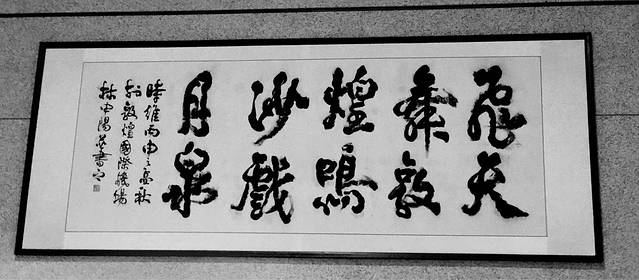 飛天
舞敦
煌鳴
沙戲
月泉
時維丙申之秋
於敦煌國際機場
林中陽書